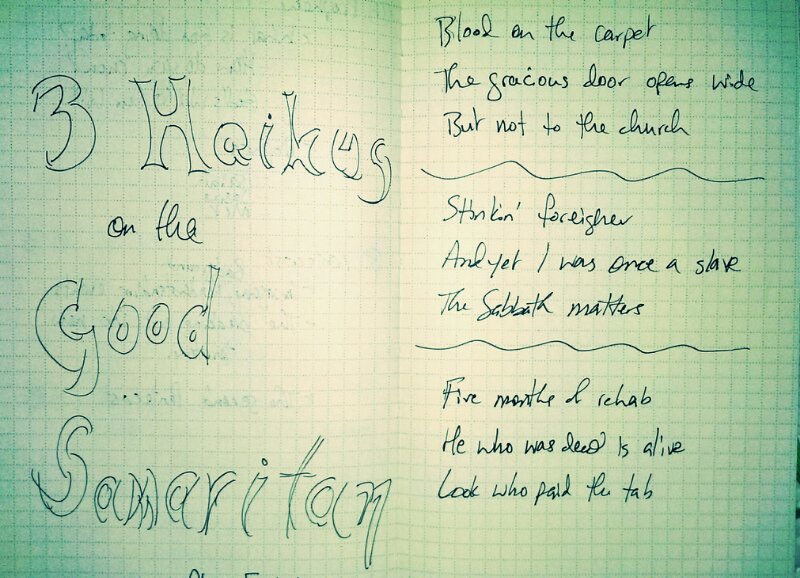 3 Haikus
on the
Good
Samaritan
Blood on the carpet
The gracious door opens wide
But not to the church
Stinkin' foreigner
And yet I was once a slave
The Sabbath matters
Five months of rehab
He who was dead is alive
Look who paid the tab